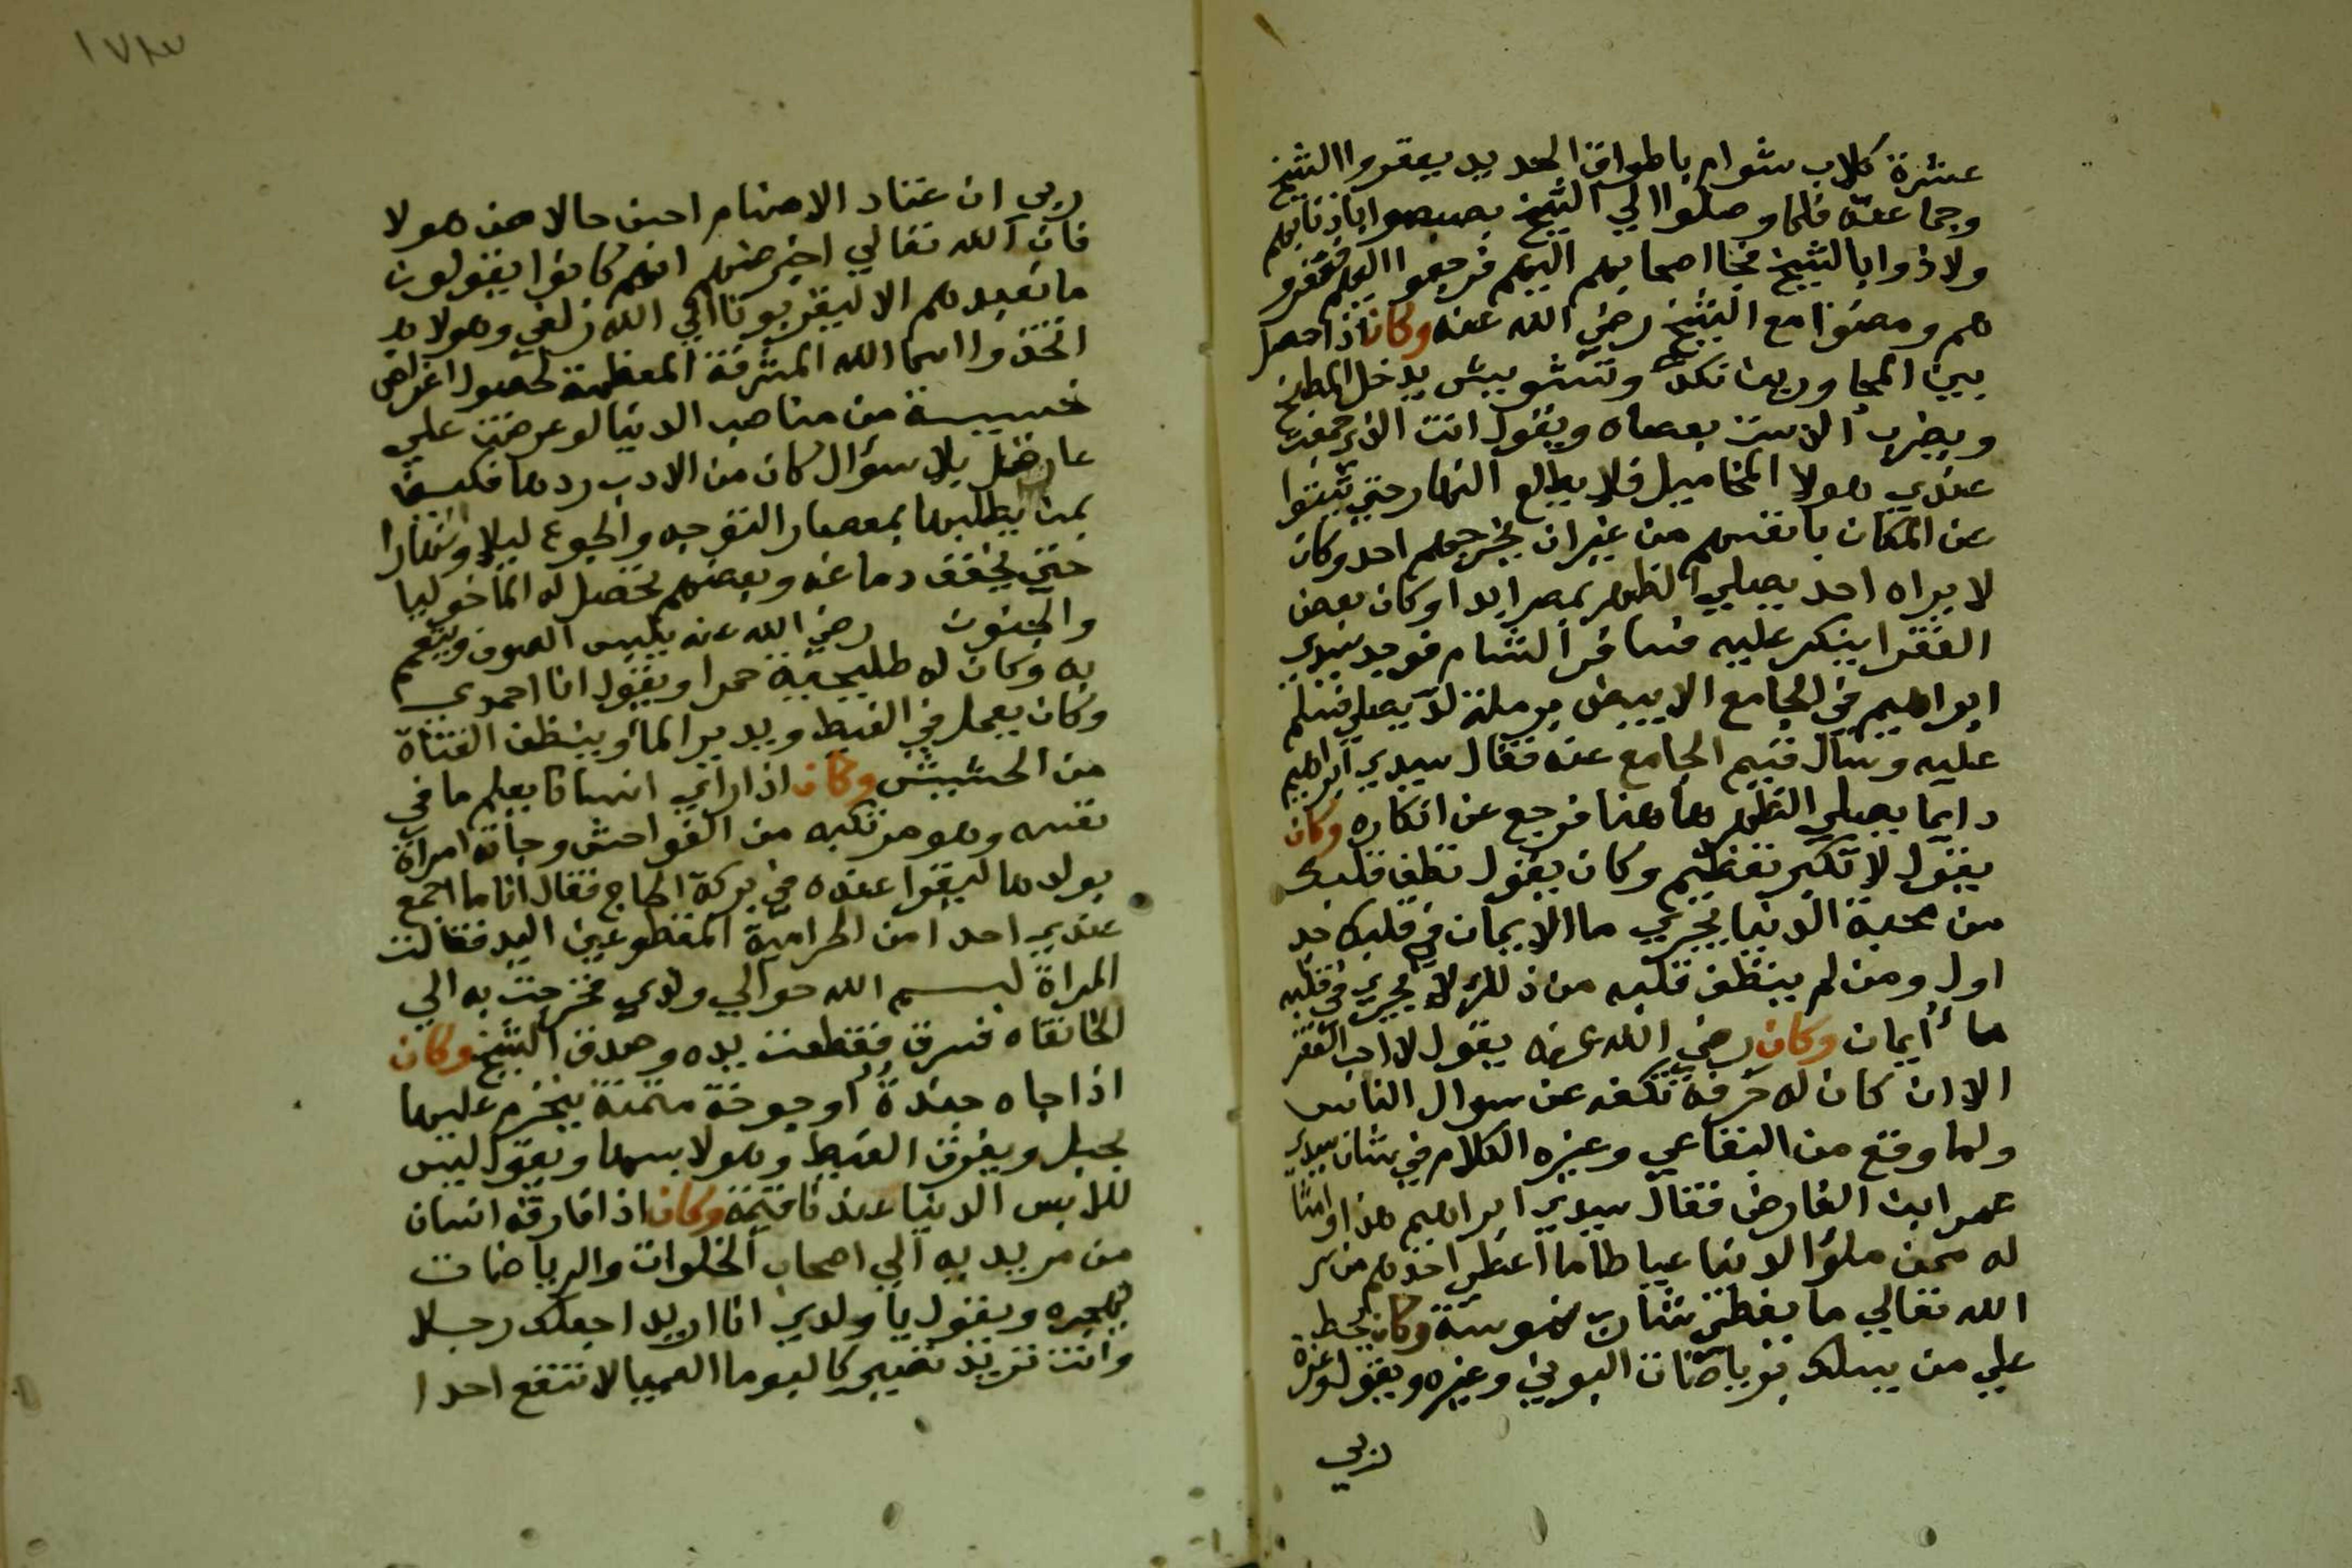 عشرة كلاب شوام باطواق الحديد يعقروا الشيخ
وجماعته فلما وصلوا الي الشيخ بصبصوا باذنابهم
ولاذوا بالشيخ فجا اصحابهم اليهم فرجعوا اليهم فعقرو
هم ومضوا مع الشيخ رضي الله عنه وكان اذا حصل
بين المجاورين نكد وتشويش يدخل المطبخ
ويضرب الدست بعصاه ويقول انت الذي جمعت
عندي هولا المخاميل فلا يطلع النهار حتي يشتتوا
عن المكان بانفسهم من غير ان يخرجهم احد وكان
لا يراه احد يصلي الظهر بمصر ابدا وكان بعض
الفقرا ينكر عليه فسافر الشام فوجد سيدي
ابراهيم في الجامع الابيض برملة لد يصلي فسلم
عليه وسال قيم الجامع عنه فقال سيدي ابراهيم
دايما يصلي الظهر هاهنا فرجع عن انكاره وكان
يقول لا تكبر تعظيم وكان يقول نظف قلبك
من محبة الدنيا يجري ما الايمان في قلبك جد
اول ومن لم ينظف قلبه من ذلك لا يجري في قلبه
ما ايمان وكان رضي الله عنه يقول لا احب الفقر
الا ان كان له حرفة تكفه عن سوال الناس
ولما وقع من البقاعي وغيره الكلام في شان سيدي
عمر ابن الفارض فقال سيدي ابراهيم هذا وامثا
له ممن ملؤا الدنيا عياطا ما اعطي احدهم من سر
الله تعالي ما يغطي شارب ناموسة وكان يحط
علي من يسلك برياضات البوني وغيره ويقول وعزة
ربي
١٧٣
ربي ان عباد الاصنام احسن حالا من هولا
فان الله تعالي اخبر عنهم انهم كانوا يقولون
ما نعبدهم الا ليقربونا الي الله زلفي وهولا
اتخذوا اسما الله المشرفة المعظمة لحصول اغراض
خسيسة من مناصب الدنيا لو عرضت علي
عاقل بلا سؤال كان من الادب ردها فكيف
بمن يطلبها بمعصار التوجه والجوع ليلا ونهارا
حتي يخفف دماغه وبعضهم يحصل له الماخوليا
والجنون رضي الله عنه يلبس الصوف ويتعمم
به وكان له طليحية حمرا ويقول انا احمدي
وكان يعمل في الغيط ويدير الما وينظف القثاة
من الحشيش وكان اذا راي انسانا يعلم ما في
نفسه وهو مرتكبه من الفواحش وجاته امراة
بولدها ليقرا عنده في بركة الحاج فقال انا ما اجمع
عندي احدا من الحرامية المقطوعين اليد فقالت
المراة بسم الله حوالي ولدي فخرجت به الي
الخانقاه فسرق فقطعت يده وصدق الشيخ وكان
اذا جاه جندة او جوخة مثمنة يتحزم عليها
بحبل ويغرق الغيط وهو لابسها ويقول ليس
للابس الدنيا عندنا قيمة وكان اذا فارقه انسان
من مريديه الي اصحاب الخلوات والرياضات
يهجره ويقول يا ولدي انا اريد اجعلك رجلا
وانت تريد تصير كالبوما العميا لا تنفع احدا